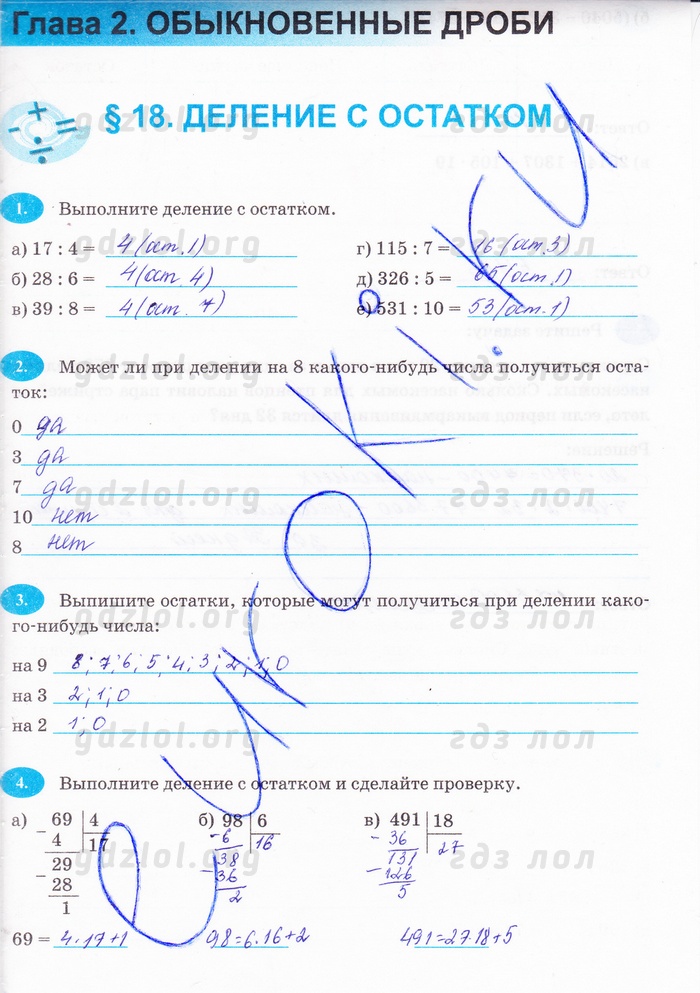 Глава 2. ОБЫКНОВЕННЫЕ ДРОБИ
§ 18. ДЕЛЕНИЕ С ОСТАТКОМ
gdzlol.org гдз лол
1. Выполните деление с остатком.
а) 17 : 4 = 4 (ост. 1) г) 115 : 7 = 16 (ост. 3)
gdzlol.org гдз лол
б) 28 : 6 = 4 (ост. 4) д) 326 : 5 = 65 (ост. 1)
в) 39 : 8 = 4 (ост. 7) е) 531 : 10 = 53 (ост. 1)
2. Может ли при делении на 8 какого-нибудь числа получиться оста-
gdzlol.org гдз лол
ток:
0 да
3 да
7 да
gdzlol.org гдз лол
10 нет
8 нет
3. Выпишите остатки, которые могут получиться при делении како-
gdzlol.org гдз лол
го-нибудь числа:
на 9 8; 7; 6; 5; 4; 3; 2; 1; 0
на 3 2; 1; 0
на 2 1; 0
gdzlol.org гдз лол
4. Выполните деление с остатком и сделайте проверку.
а) 69 4 б) 98 6 в) 491 18
- 4 17 - 6 16 - 36 27
29 38 131
gdzlol.org гдз лол
- 28 - 36 - 126
1 2 5
69 = 4·17+1 98=6·16+2 491=27·18+5